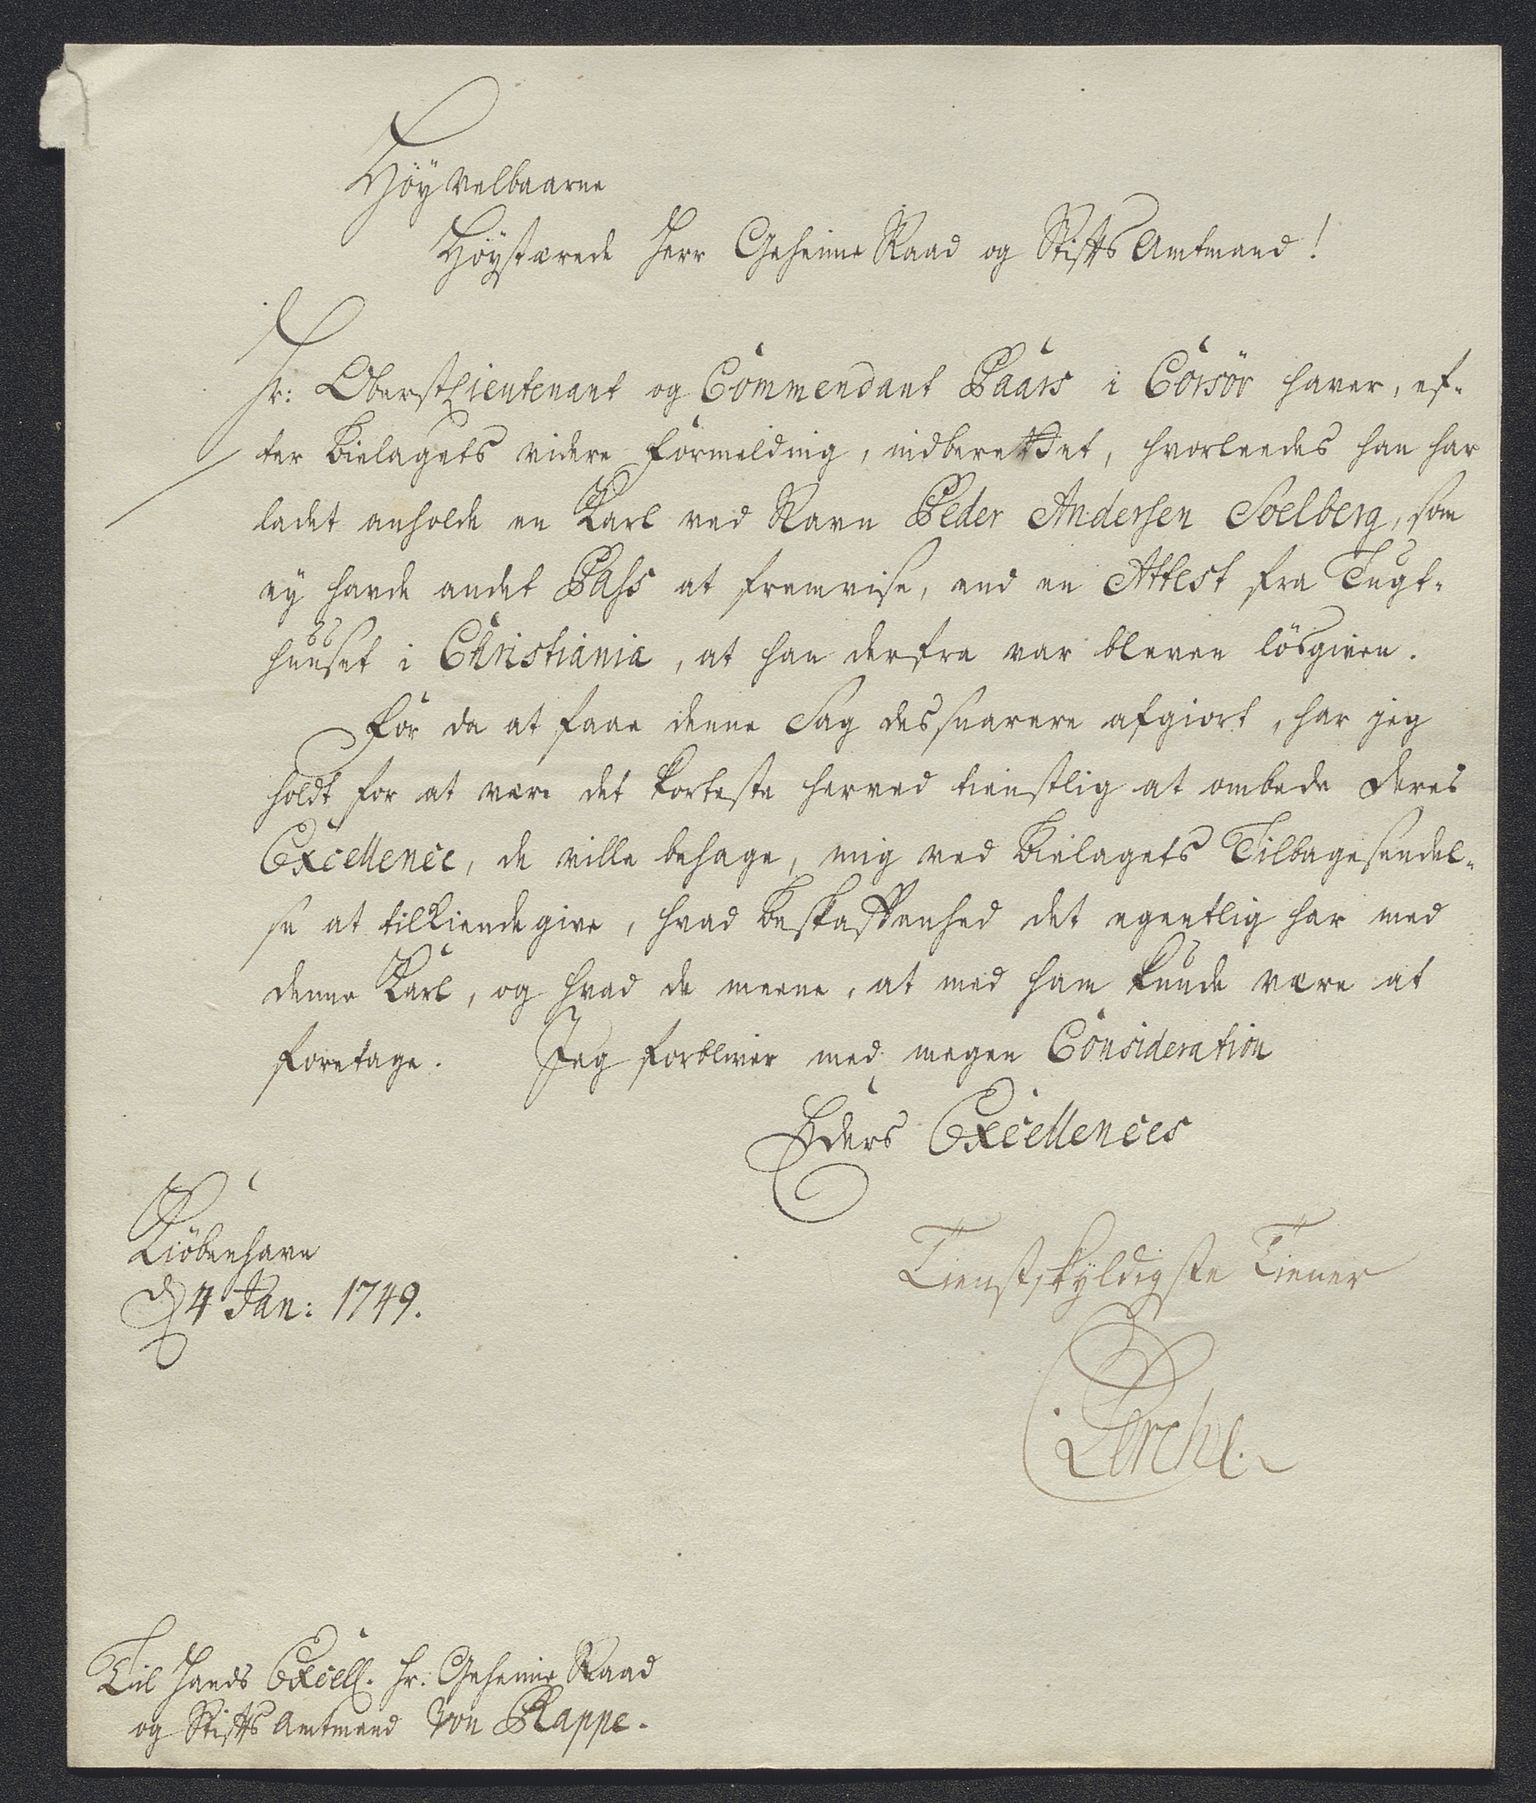 Höyvelbaarne
Höystærede Herr Geheime Raad og Stifts Amtmand!
Hr: OberstLieutenant og Commendant Paars i Corsör haver, ef-
ter Bielagets videre Formelding, indberettet, hvorleedes han har
ladet anholde en Karl ved Navn Peder Andersen Soelberg, som
ey havde andet Pass at fremvise, end en Attest fra Tugt-
huuset i Christiania, at han derfra var bleven lösgiven.
For da at faae denne Sag dessnarere afgiort, har jeg
holdt for at være det korteste herved tienstlig at ombede Deres
Excellence, de ville behage, mig ved Bielagets Tilbagesendel-
se at tilkiendegive, hvad Beskaffenhed det egentlig har med
denne Karl, og hvad de meene, at med ham kunde være at
foretage. Jeg forbliver med megen Consideration
Eders Excellences
Kiöbenhavn
d 4 Jan: 1749.
Tienstskyldigste Tiener
Lerche.
Til Hands Excell. Hr. Geheime Raad
og Stifts Amtmand von Rappe.